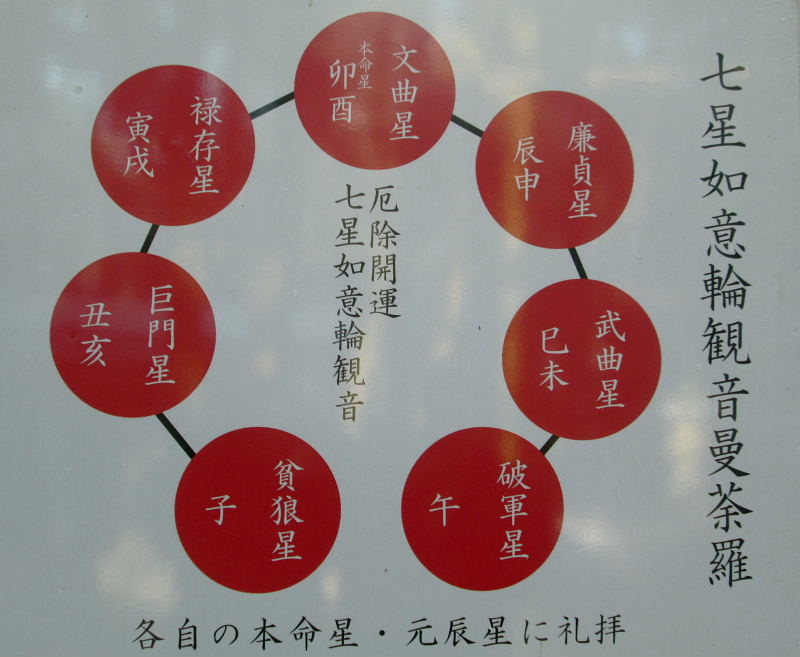 七星如意輪観音曼荼羅
文曲星
本命星
卯酉
廉貞星
辰申
武曲星
巳未
破軍星
午
禄存星
寅戌
巨門星
丑亥
貧狼星
子
厄除開運
七星如意輪観音
各自の本命星・元辰星に礼拝